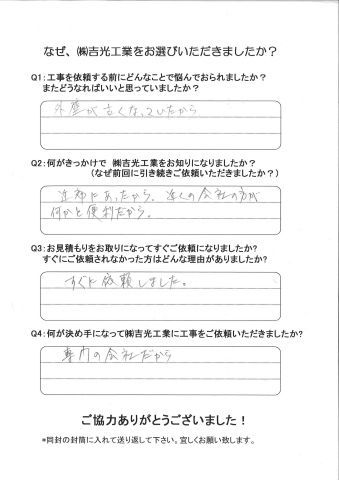 なぜ、㈱吉光工業をお選びいただきましたか？
Q1：工事を依頼する前にどんなことで悩んでおられましたか？
またどうなればいいと思っていましたか？
外壁が古くなっていたから
Q2：何がきっかけで ㈱吉光工業をお知りになりましたか？
（なぜ前回に引き続きご依頼いただきましたか？）
近所にあったから、近くの会社の方が
何かと便利だから。
Q3：お見積もりをお取りになってすぐご依頼になりましたか？
すぐにご依頼されなかった方はどんな理由がありましたか？
すぐに依頼しました。
Q4：何が決め手になって㈱吉光工業に工事をご依頼いただきましたか？
専門の会社だから
ご協力ありがとうございました！
*同封の封筒に入れて送り返して下さい。宜しくお願い致します。